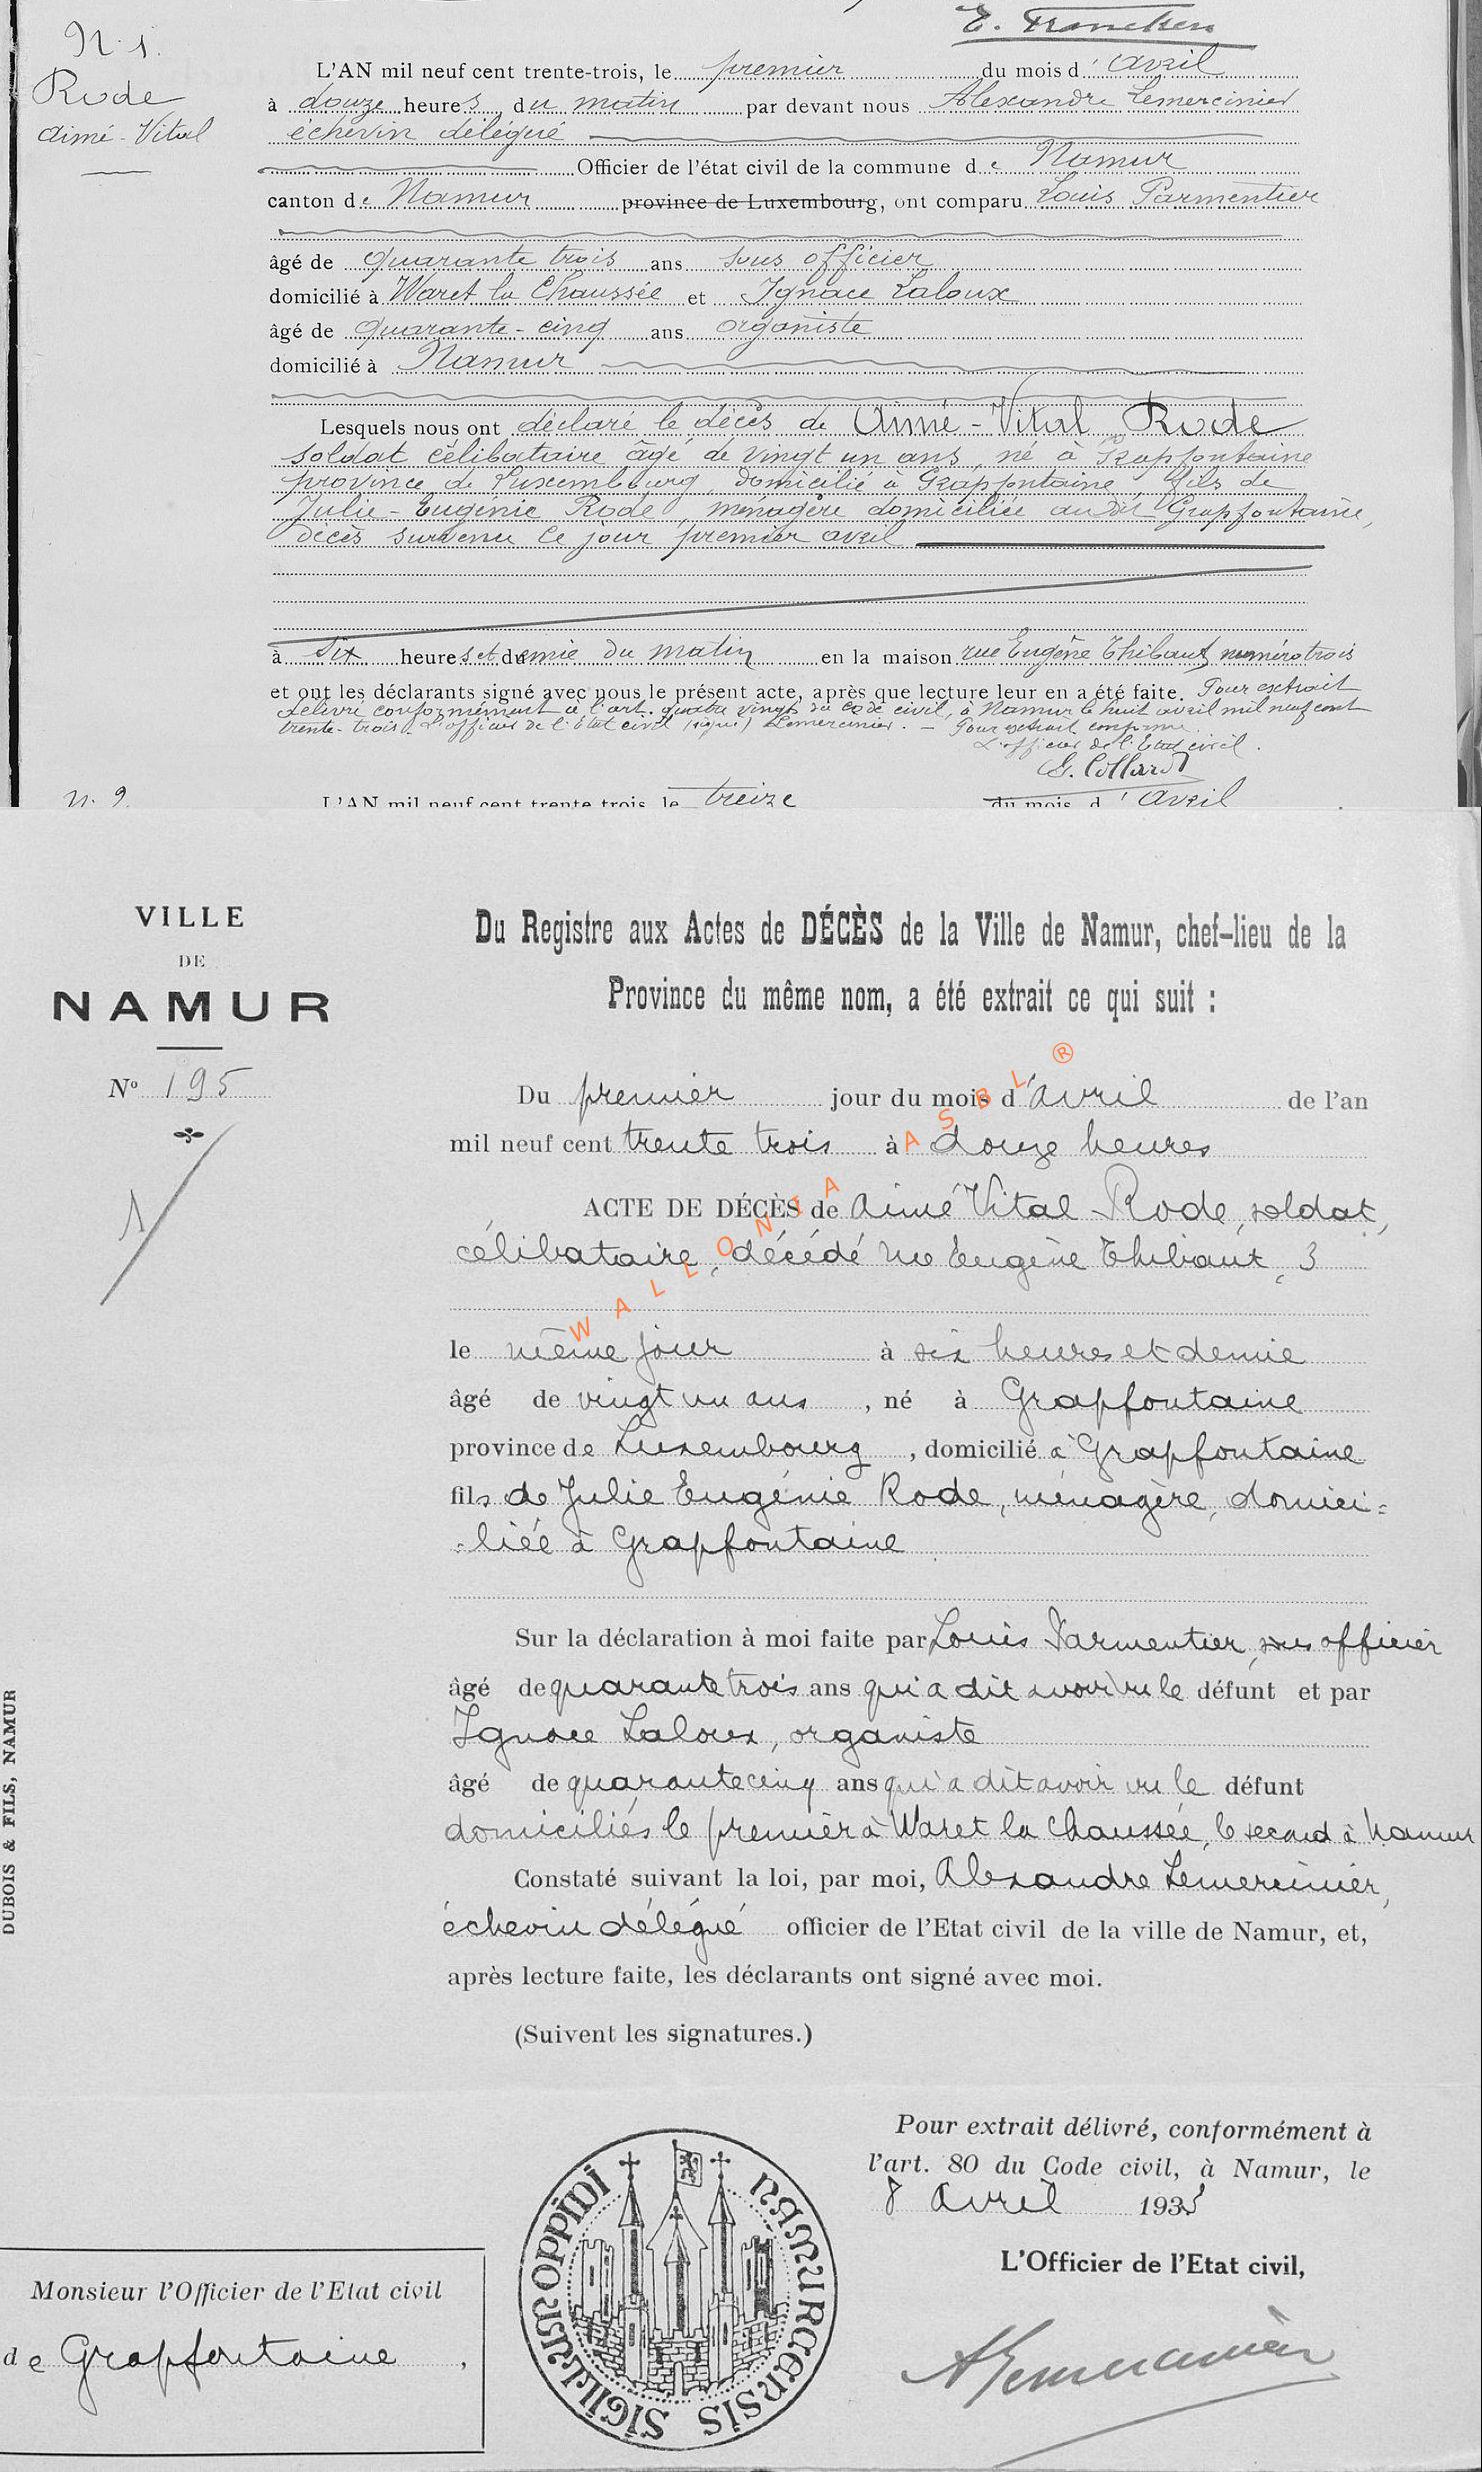 E. Francken
N. 1.
Rode
Aimé-Vital
L'AN mil neuf cent trente-trois, le premier du mois d'avril
à douze heures du matin par devant nous Alexandre Lemercinier
échevin délégué
Officier de l'état civil de la commune de Namur
canton de Namur province de Luxembourg, ont comparu Louis Parmentier
âgé de quarante trois ans sous officier
domicilié à Waret la Chaussée et Ignace Laloux
âgé de quarante-cinq ans organiste
domicilié à Namur
Lesquels nous ont déclaré le décès de Aimé-Vital Rode
soldat célibataire âgé de vingt un ans, né à Grapfontaine
province de Luxembourg, domicilié à Grapfontaine, fils de
Julie-Eugénie Rode, ménagère domiciliée au dit Grapfontaine,
décès survenu ce jour premier avril
à six heures et demie du matin en la maison rue Eugène Thibaut numéro trois
et ont les déclarants signé avec nous le présent acte, après que lecture leur en a été faite. Pour extrait
délivré conformément à l'art. quatre vingt du code civil, à Namur le huit avril mil neuf cent
trente-trois. L'officier de l'Etat civil (signé) Lemercinier. — Pour extrait conforme
L'officier de l'Etat civil.
G. Collard
n. 9.
L'AN mil neuf cent trente trois, le treize du mois d'avril
VILLE
DE
NAMUR
N° 195
1
Du Registre aux Actes de DÉCÈS de la Ville de Namur, chef-lieu de la
Province du même nom, a été extrait ce qui suit :
Du premier jour du mois d'avril de l'an
mil neuf cent trente trois à douze heures
ACTE DE DÉCÈS de Aimé Vital Rode, soldat,
célibataire, décédé rue Eugène Thibaut, 3
WALLONIA ASBL ®
le même jour à six heures et demie
âgé de vingt un ans, né à Grapfontaine
province de Luxembourg, domicilié à Grapfontaine
fils de Julie Eugénie Rode, ménagère, domici=
=liée à Grapfontaine
Sur la déclaration à moi faite par Louis Parmentier, sous officier
âgé de quarante trois ans qui a dit avoir vu le défunt et par
Ignace Laloux, organiste
âgé de quarante cinq ans qui a dit avoir vu le défunt
domiciliés le premier à Waret la Chaussée, le second à Namur
Constaté suivant la loi, par moi, Alexandre Lemercinier,
échevin délégué officier de l'Etat civil de la ville de Namur, et,
après lecture faite, les déclarants ont signé avec moi.
(Suivent les signatures.)
DUBOIS & FILS, NAMUR
Pour extrait délivré, conformément à
l'art. 80 du Code civil, à Namur, le
8 avril 1933
L'Officier de l'Etat civil,
ALemercinier
SIGILLUM OPPIDI NAMURCENSIS
Monsieur l'Officier de l'Etat civil
de Grapfontaine,